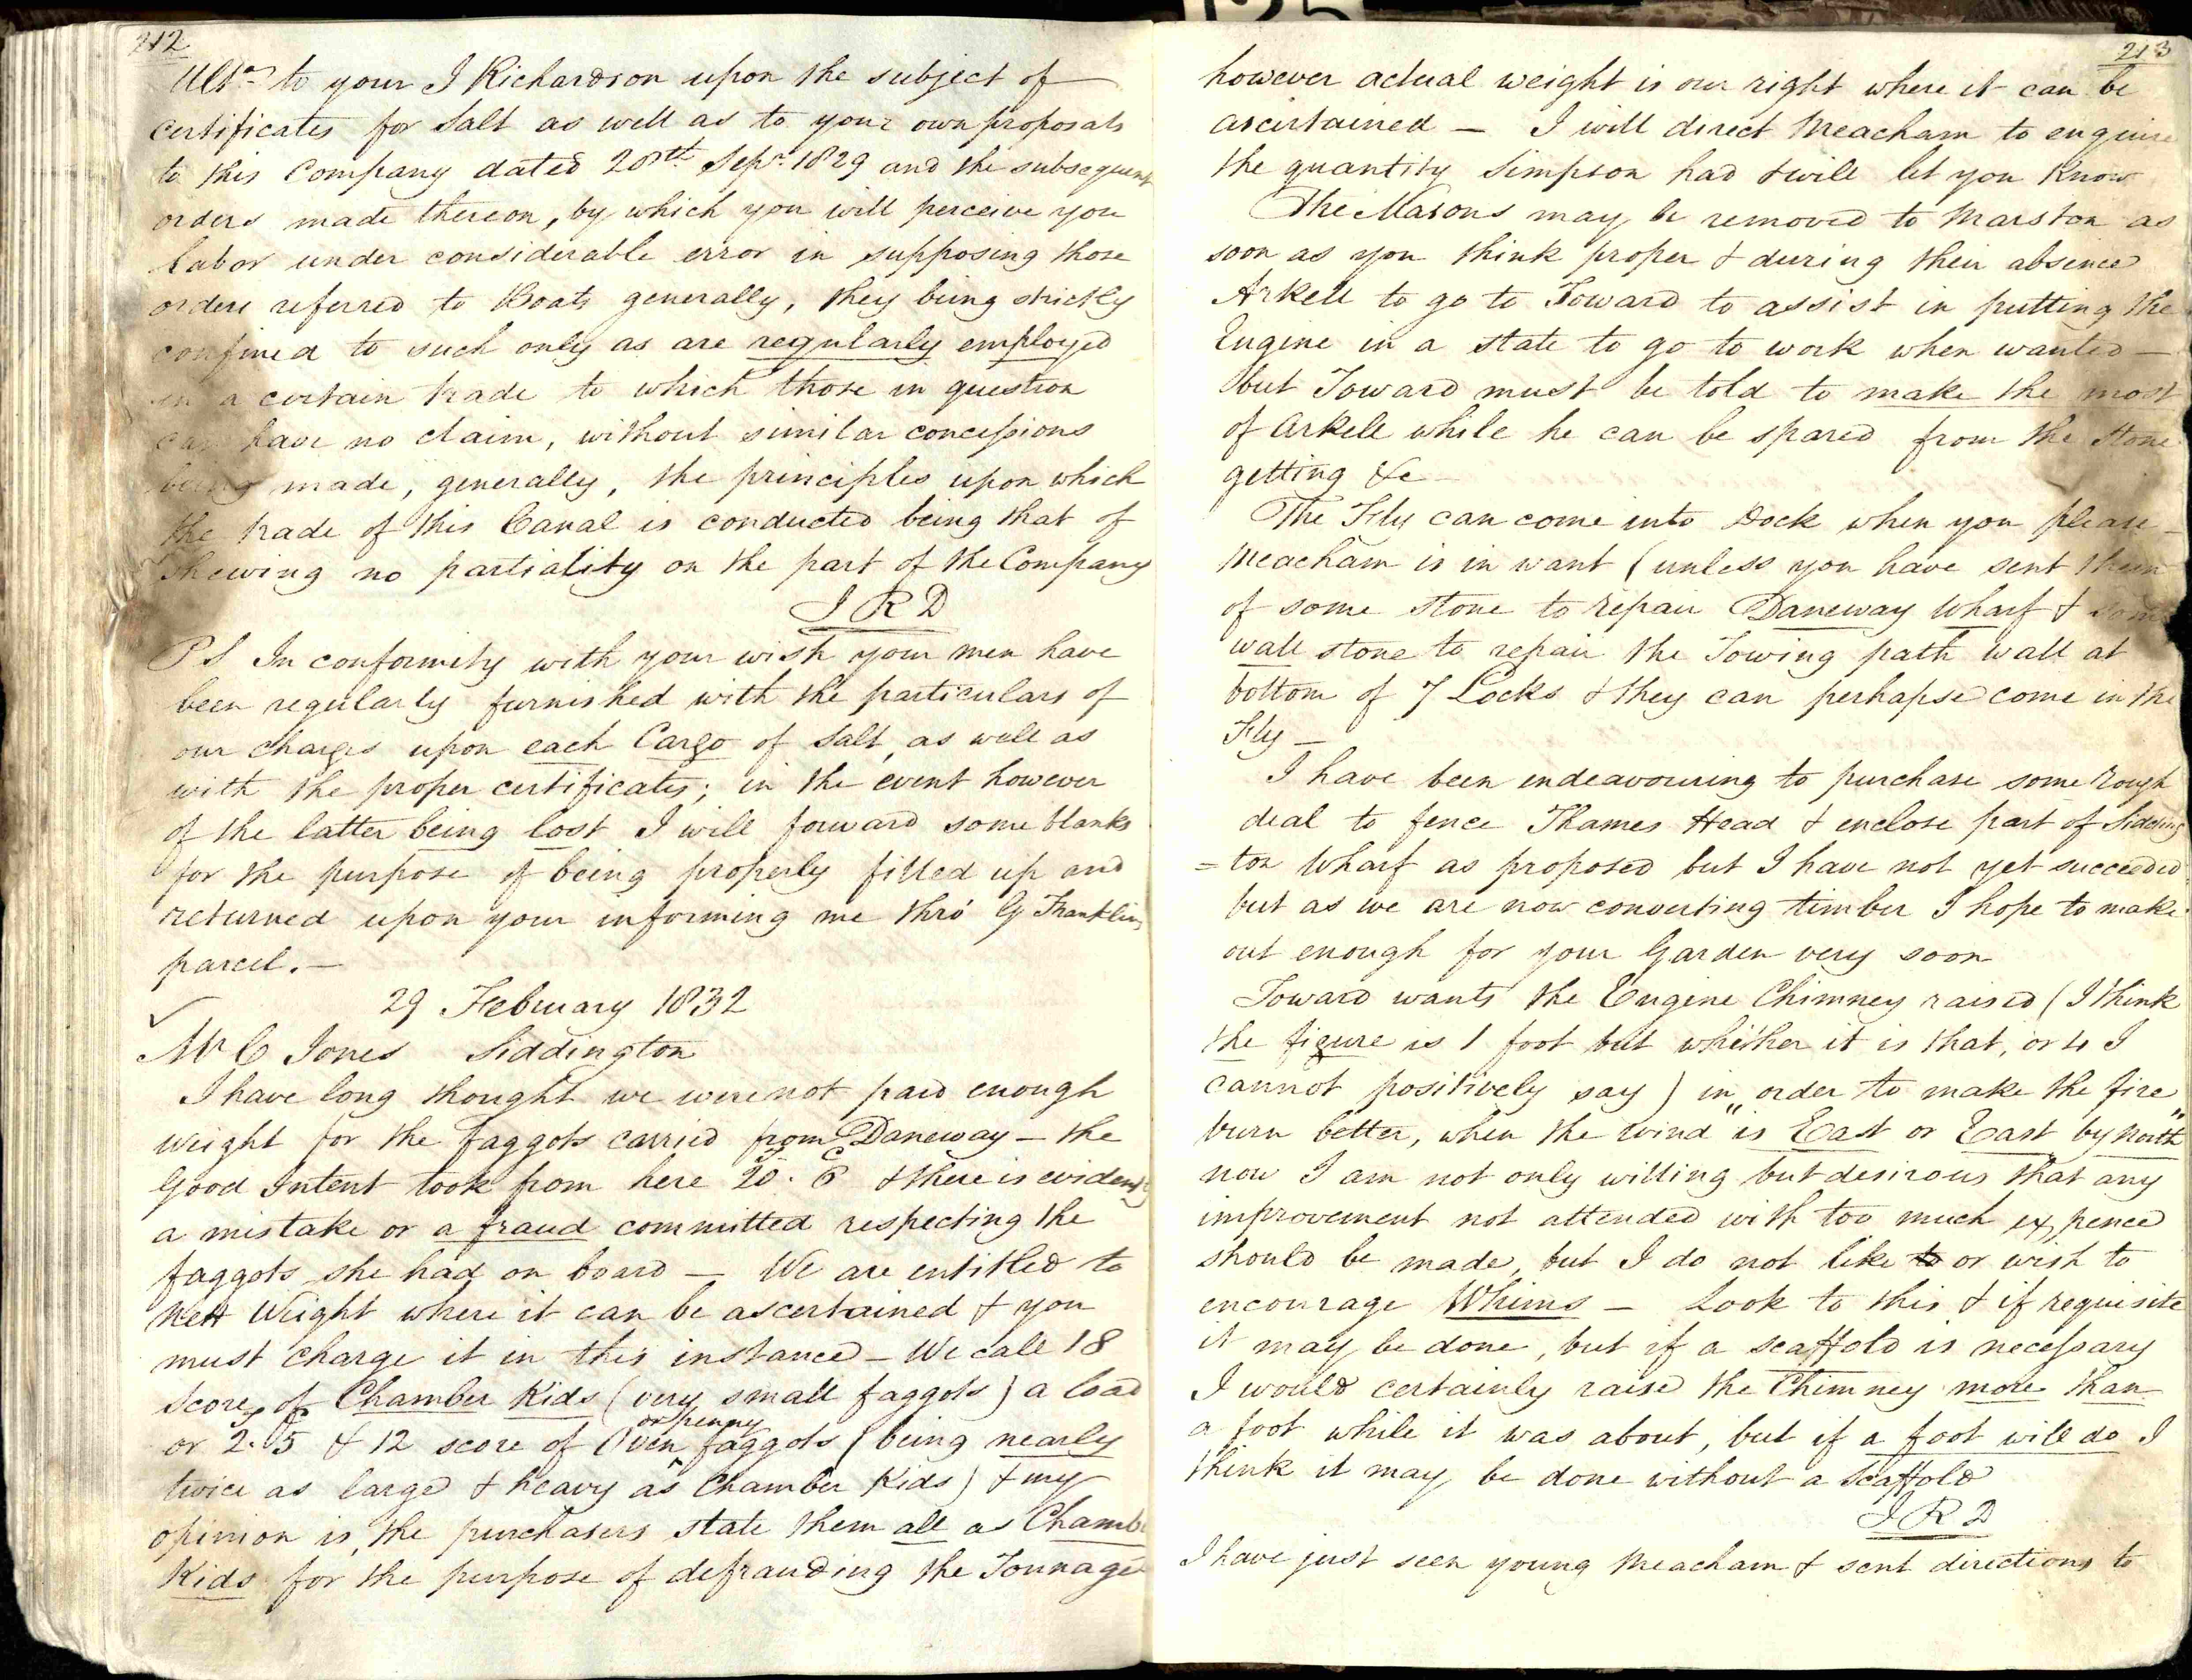 212
Ulto. to your J Richardson upon the subject of
certificates for Salt as well as to your own proposals
to this Company dated 28th Sepr. 1829 and the subsequent
orders made thereon, by which you will perceive you
labor under considerable error in supposing those
orders referred to Boats generally, they being strictly
confined to such only as are regularly employed
in a certain trade to which those in question
can have no claim, without similar concessions
being made, generally, the principles upon which
the trade of this Canal is conducted being that of
shewing no partiality on the part of the Company
J R D
PS In conformity with your wish your men have
been regularly furnished with the particulars of
our charges upon each Cargo of Salt, as well as
with the proper certificates; in the event however
of the latter being lost I will forward some blanks
for the purpose of being properly filled up and
returned upon your informing me thro' G Franklin,
parcel. —
29 February 1832
✓
Mr C Jones Siddington
I have long thought we were not paid enough
weight for the faggots carried from Daneway — the
Good Intent took from here 20 T. 6 C & there is evidently
a mistake or a fraud committed respecting the
faggots she had on board — We are entitled to
nett Weight where it can be ascertained & you
must charge it in this instance — We call 18
Score of Chamber Kids (very small faggots) a load
or 2 T. 5 C & 12 score of Oven or penny faggots (being nearly
twice as large & heavy as Chamber Kids) & my
opinion is, the purchasers state them all as Chambr
Kids for the purpose of defrauding the Tonnage
213
however actual weight is our right where it can be
ascertained — I will direct Meacham to enquire
the quantity Simpson had & will let you know
The Masons may be removed to Marston as
soon as you think proper & during their absence
Arkell to go to Toward to assist in putting the
Engine in a state to go to work when wanted —
but Toward must be told to make the most
of Arkell while he can be spared from the Stone
getting &c —
The Fly can come into Dock when you please —
Meacham is in want (unless you have sent them
of some stone to repair Daneway Wharf & some
wall stone to repair the Towing path wall at
bottom of 7 Locks & they can perhapse come in the
Fly —
I have been endeavouring to purchase some rough
deal to fence Thames Head & enclose part of Sidding
=ton Wharf as proposed but I have not yet succeeded
but as we are now converting timber I hope to make
out enough for your Garden very soon
Toward wants the Engine Chimney raised (I think
the figure is 1 foot but whether it is that, or 4 I
cannot positively say) in order to make the fire
burn better, when the wind "is East or East by north"
now I am not only willing but desirous that any
improvement not attended with too much expence
should be made, but I do not like to or wish to
encourage Whims — Look to this & if requisite
it may be done, but if a scaffold is necessary
I would certainly raise the Chimney more than
a foot while it was about, but if a foot will do I
think it may be done without a Scaffold
J R D
I have just seen young Meacham & sent directions to